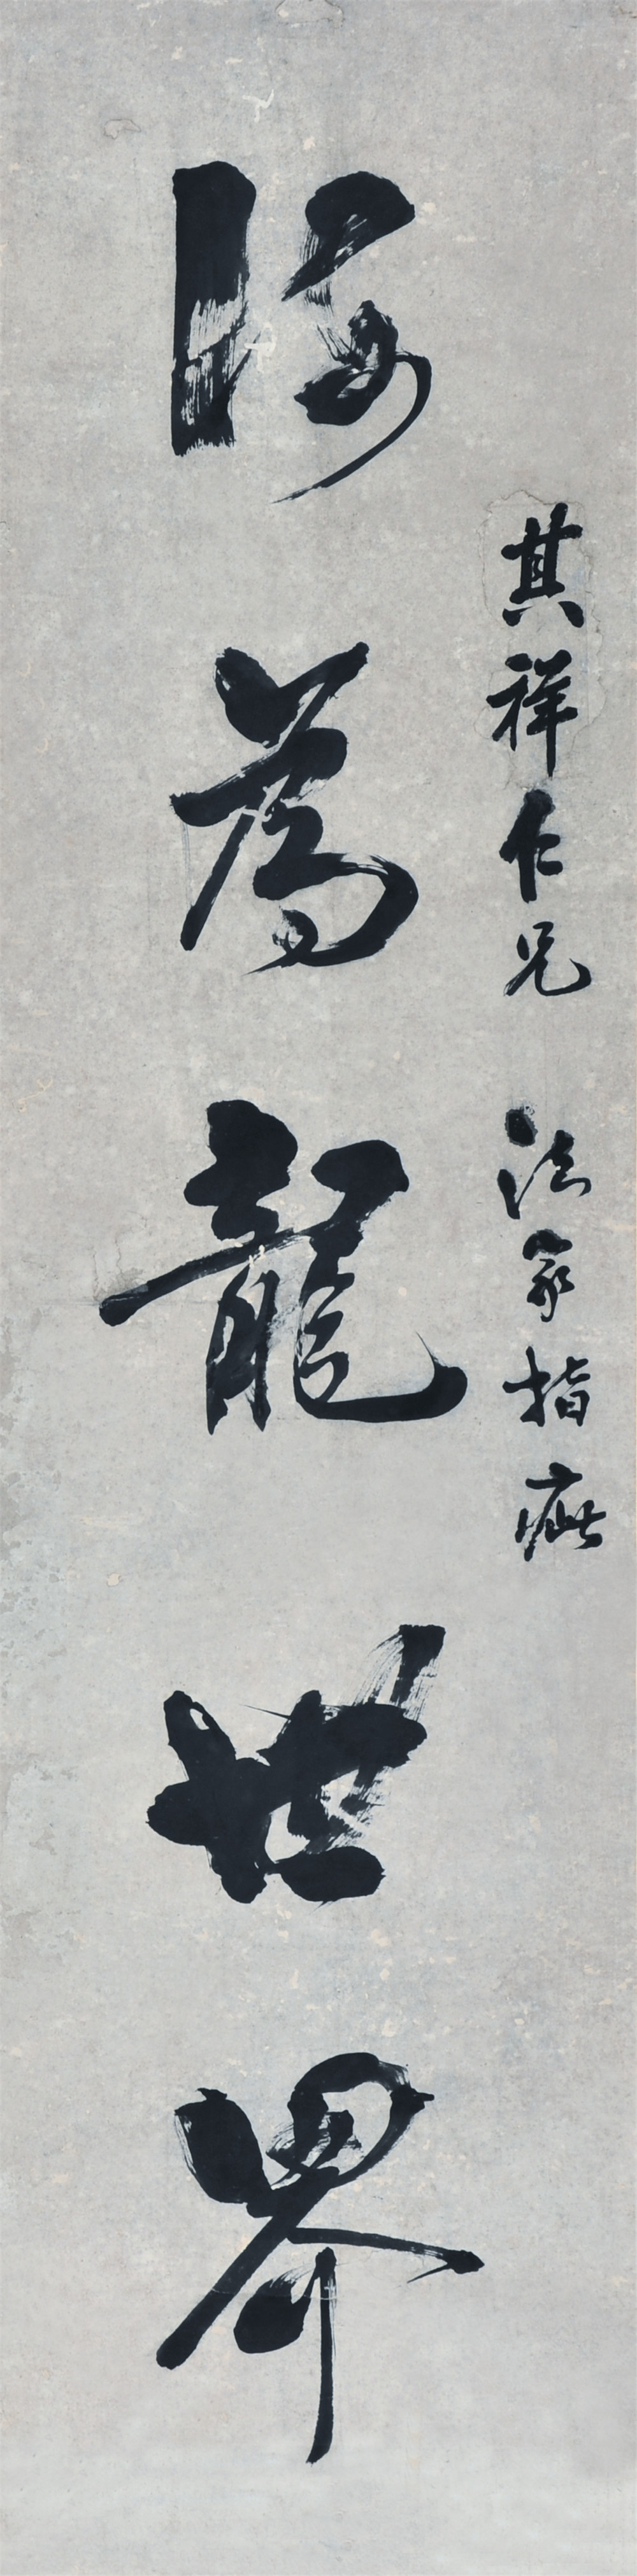 其祥仁兄法家指疵
海為龍世界